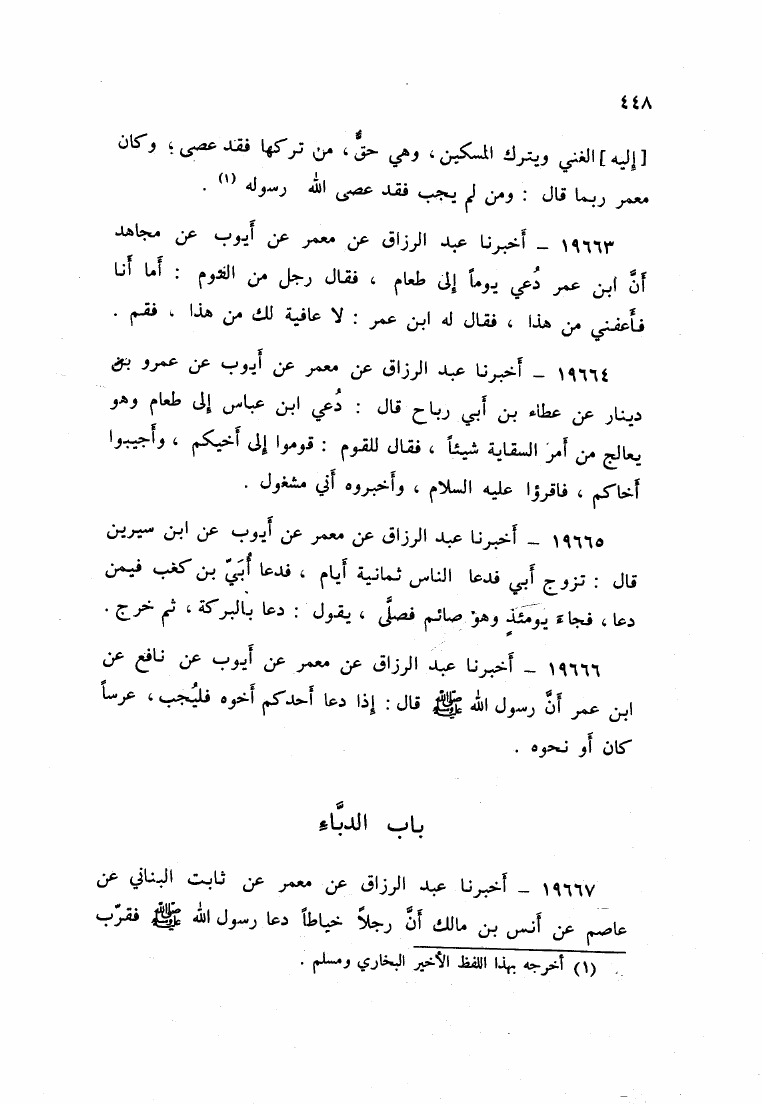 ٤٤٨
[إليه] الغني ويترك المسكين ، وهي حقٌّ ، من تركها فقد عصى ؛ وكان
معمر ربما قال : ومن لم يجب فقد عصى الله رسوله (١) .
١٩٦٦٣ – أخبرنا عبد الرزاق عن معمر عن أيوب عن مجاهد
أنَّ ابن عمر دُعي يوماً إلى طعام ، فقال رجل من القوم : أما أنا
فأعفني من هذا ، فقال له ابن عمر : لا عافية لك من هذا ، فقم .
١٩٦٦٤ – أخبرنا عبد الرزاق عن معمر عن أيوب عن عمرو بن
دينار عن عطاء بن أبي رباح قال : دُعي ابن عباس إلى طعام وهو
يعالج من أمر السقاية شيئاً ، فقال للقوم : قوموا إلى أخيكم ، وأجيبوا
أخاكم ، فاقرؤا عليه السلام ، وأخبروه أني مشغول .
١٩٦٦٥ – أخبرنا عبد الرزاق عن معمر عن أيوب عن ابن سيرين
قال : تزوج أبي فدعا الناس ثمانية أيام ، فدعا أُبَيّ بن كعب فيمن
دعا ، فجاء يومئذٍ وهو صائم فصلَّى ، يقول : دعا بالبركة ، ثم خرج .
١٩٦٦٦ – أخبرنا عبد الرزاق عن معمر عن أيوب عن نافع عن
ابن عمر أنَّ رسول الله ﷺ قال : إذا دعا أحدكم أخوه فليُجب ، عرساً
كان أو نحوه .
باب الدبَّاء
١٩٦٦٧ – أخبرنا عبد الرزاق عن معمر عن ثابت البناني عن
عاصم عن أنس بن مالك أنَّ رجلاً خياطاً دعا رسول الله ﷺ فقرّب
(١) أخرجه بهذا اللفظ الأخير البخاري ومسلم .